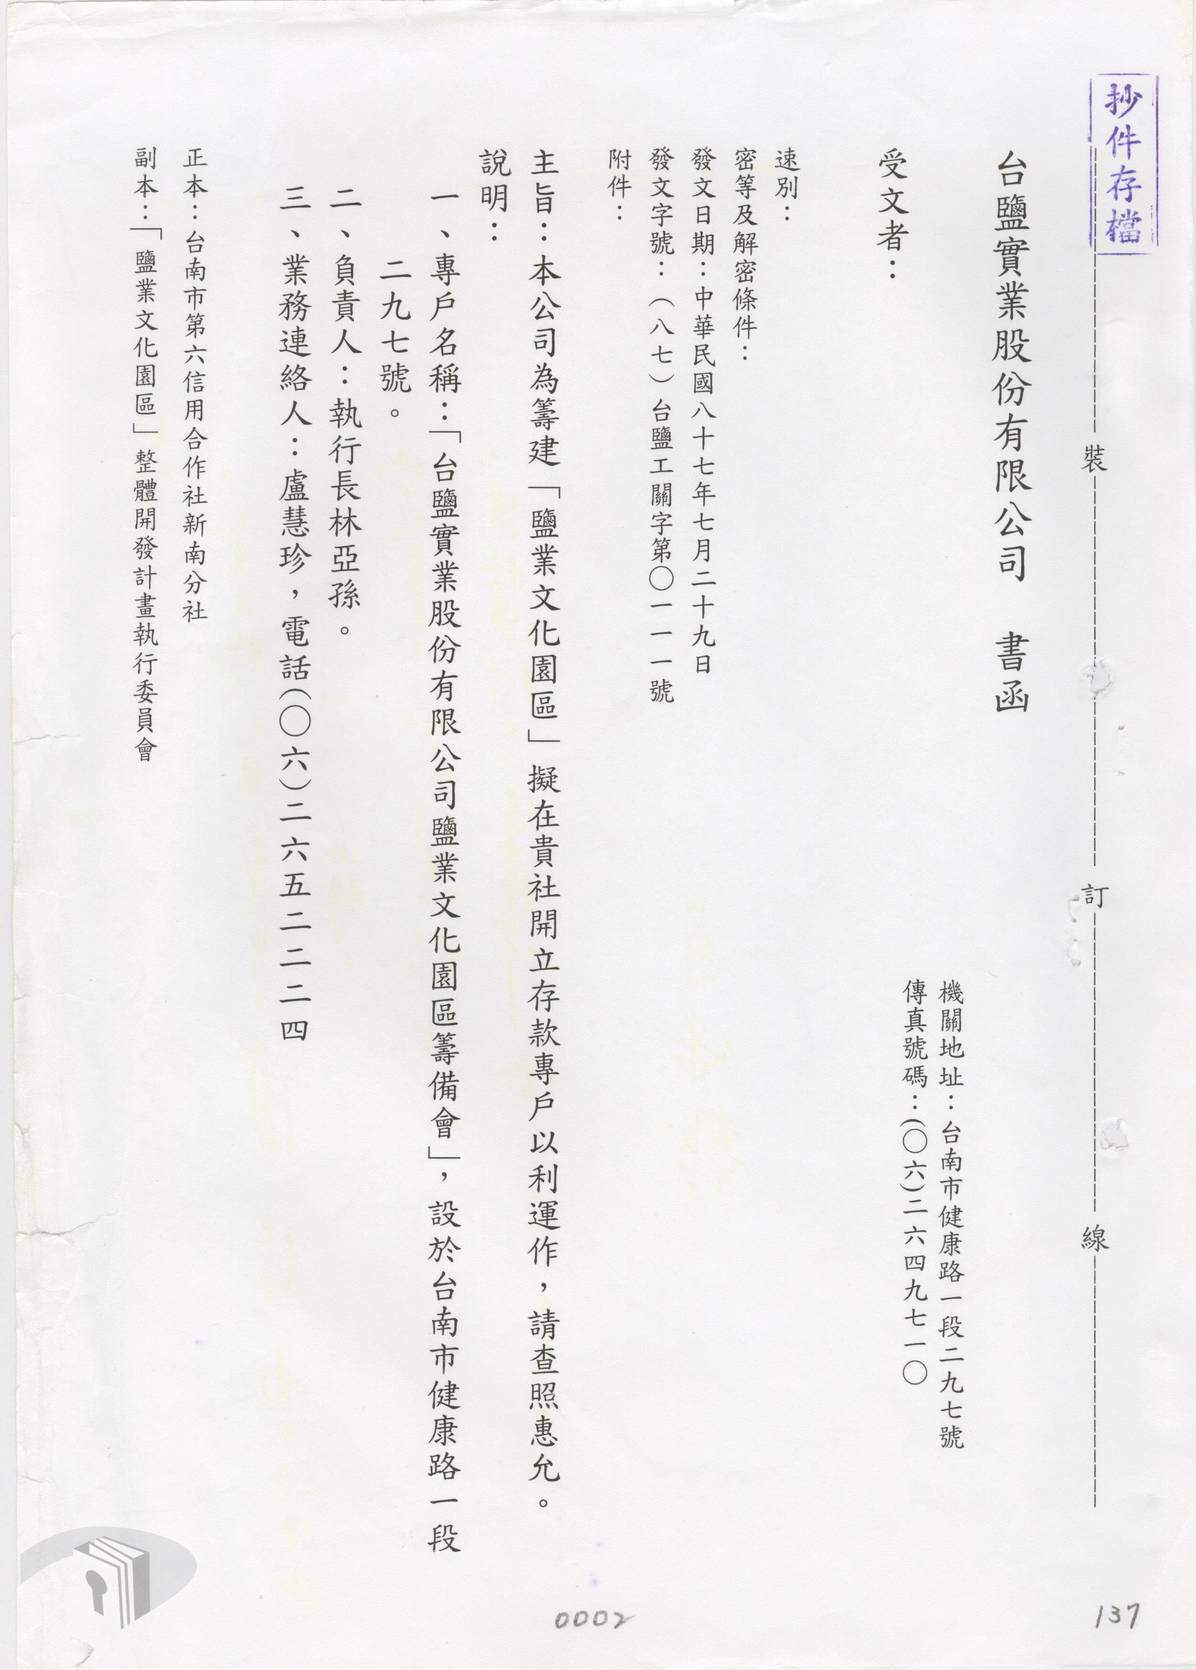 抄件存檔
裝
訂
線
台鹽實業股份有限公司 書函
機關地址：台南市健康路一段二九七號
傳真號碼：(○六)二六四九七一○
受文者：
速別：
密等及解密條件：
發文日期：中華民國八十七年七月二十九日
發文字號：（八七）台鹽工關字第○一一一號
附件：
主旨：本公司為籌建「鹽業文化園區」擬在貴社開立存款專戶以利運作，請查照惠允。
說明：
一、專戶名稱：「台鹽實業股份有限公司鹽業文化園區籌備會」，設於台南市健康路一段
二九七號。
二、負責人：執行長林亞孫。
三、業務連絡人：盧慧珍，電話(○六)二六五二二二四
正本：台南市第六信用合作社新南分社
副本：「鹽業文化園區」整體開發計畫執行委員會
0002
137